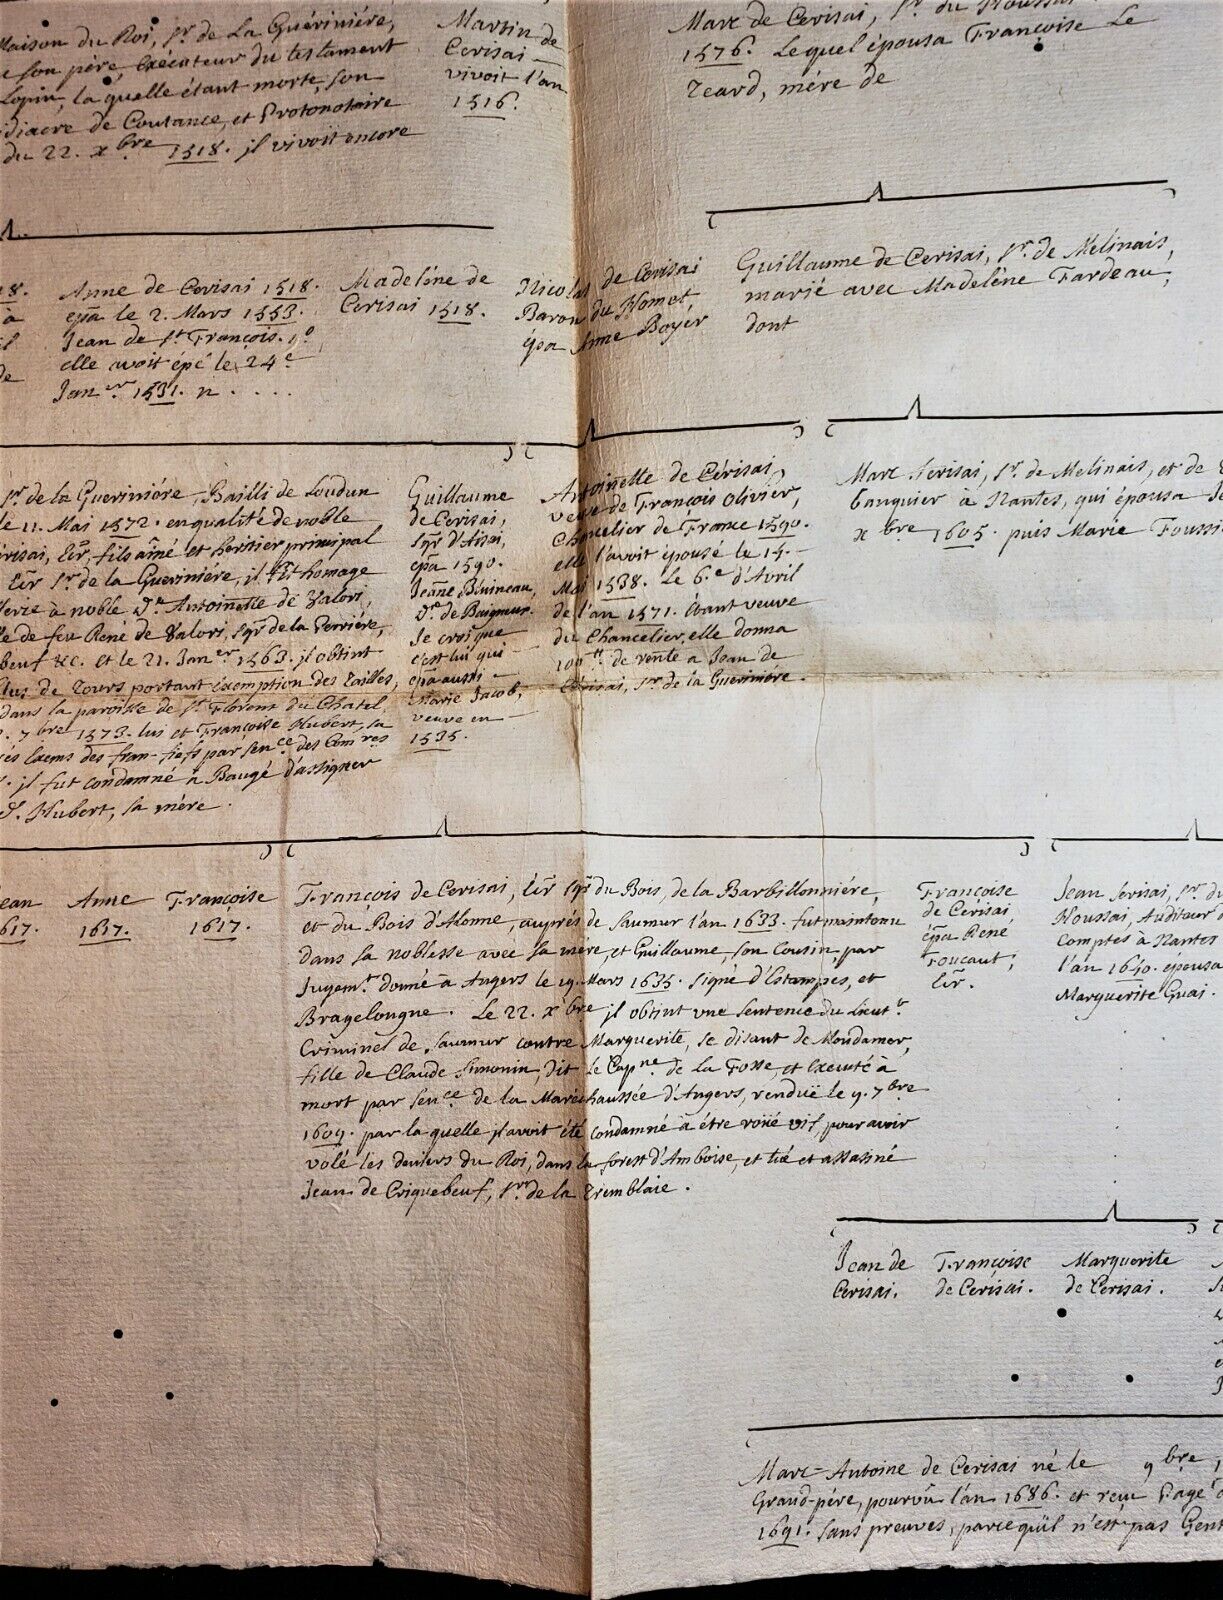 Maison du Roi, Sr. de La Guériniére,
son pére, exécuteur du testament
Lopin, la quelle étant morte, son
diacre de Coutance, et Protonotaire
du 22. xbre 1518. il vivoit encore
Martin de
Cerisai
vivoit l'an
1516.
Marc de Cerisai, Sr. du Houssai
1576. Lequel épousa Françoise Le
Teard, mére de
18.
à
il
de
Anne de Cerisai 1518.
épa le 2. Mars 1553.
Jean de St. François. 1º
elle avoit épé le 24e
Janer. 1531. n . . . .
Madeléne de
Cerisai 1518.
Nicolas de Cerisai
Baron du Homet,
épa Anne Boyer
Guillaume de Cerisai, Sr. de Melinais,
marié avec Madeléne Tardeau,
dont
Sr. de la Gueriniére, Bailli de Loudun
le 11. Mai 1572. en qualité de noble
erisai, Ecr, fils aîné et heritier principal
Ecr Sr. de la Gueriniére, il fit homage
à noble De. Antoinette de Valori,
de feu René de Valori, Sgr. de la Perriére,
beuf &c. et le 21. Janer 1563. il obtint
lus de Tours portant exemption des Tailles,
dans la paroisse de St. Florent du Chatel
7bre 1573. lui et Françoise Hubert, sa
exems des fran-fiefs par Sence. des Comres
il fut condamné à Baugé d'assigner
De. Hubert, sa mére.
Guillaume
de Cerisai,
Sgr. d'Aisai,
épa 1590.
Jeanne Bruineau,
De. de
Je crois que
c'est lui qui
épa aussi
Marie Jacob,
veuve en
1535.
Antoinette de Cérisai,
veuve de François Olivier,
Chancelier de France 1590.
elle l'avoit épousé le 14.
Mai 1538. Le 6.e d'Avril
de l'an 1571. étant veuve
du Chancelier, elle donna
100 tt de rente a Jean de
Cérisai, Sr. de la Gueriniére.
Marc Serisai, Sr. de Melinais, et de
banquier à Nantes, qui épousa
xbre 1605. puis Marie Foussi
Jean
1617.
Anne
1617.
Françoise
1617.
François de Cerisai, Ecr Sgr du Bois, de la Barbillonniére,
et du Bois d'Alonne, auprés de Saumur l'an 1633. fut maintenu
dans la noblesse avec sa mére, et Guillaume, son Cousin, par
Jugemt. donné à Angers le 19. Mars 1635. signé d'Estampes, et
Bragelongne. Le 22. xbre il obtint une sentence du Lieutt.
Criminel de Saumur contre Marguerite, se disant de Mondamer,
fille de Claude Simonin, dit le Capne. de la Fosse, et executé à
mort par Sence de la Maréchaussée d'Angers, renduë le 9. 7bre
1609. par la quelle il avoit été condamné à étre roüé vif, pour avoir
volé les deniers du Roi, dans la forest d'Amboise, et tué et assassiné
Jean de Criquebeuf, Sr. de la Tremblaie.
Françoise
de Cerisai,
épa René
Foucaut,
Ecr.
Jean Serisai, Sr. du
Houssai, Auditeur
Comptes à Nantes
l'an 1640. épousa
Marguerite Guai.
Jean de
Cerisai.
Françoise
de Cerisai.
Marguerite
de Cerisai.
Marc-Antoine de Cerisai né le 9bre,
Grand-pére, pourvû l'an 1686. et recu Page
1691. sans preuves, parce qu'il n'est pas Gent